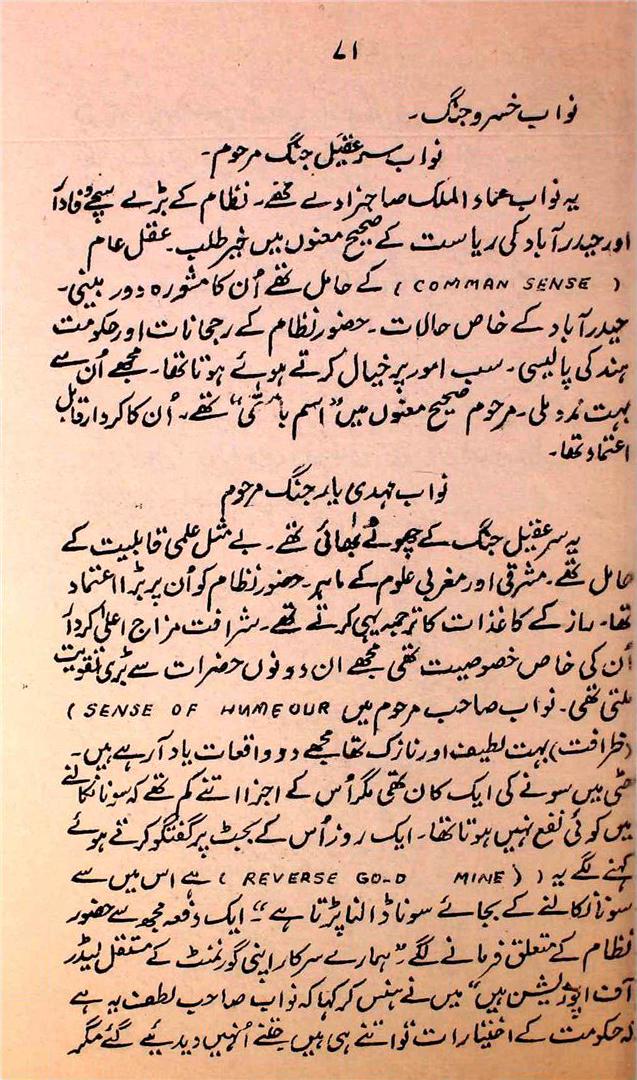 ۷۱
نواب خسرو جنگ۔
نواب سر عقیل جنگ مرحوم۔
یہ نواب عماد الملک صاحبزادے تھے۔ نظام کے بڑے سچے وفادار
اور حیدرآباد کی ریاست کے صحیح معنوں میں خیر طلب۔ عقل عام
(COMMAN SENSE) کے حامل تھے اُن کا مشورہ دور بینی۔
حیدرآباد کے خاص حالات۔ حضور نظام کے رجحانات اور حکومت
ہند کی پالیسی۔ سب امور پر خیال کرتے ہوئے ہوتا تھا۔ مجھے اُن سے
بہت مدد ملی۔ مرحوم صحیح معنوں میں "اسم بامسمّٰی" تھے۔ اُن کا کردار قابل
اعتماد تھا۔
نواب مہدی یار جنگ مرحوم
یہ سر عقیل جنگ کے چھوٹے بھائی تھے۔ بے مثل علمی قابلیت کے
حامل تھے۔ مشرقی اور مغربی علوم کے ماہر۔ حضور نظام کو اُن پر بڑا اعتماد
تھا۔ راز کے کاغذات کا ترجمہ یہی کرتے تھے۔ شرافت مزاج اعلیٰ کردار
اُن کی خاص خصوصیت تھی مجھے ان دونوں حضرات سے بڑی تقویت
ملتی تھی۔ نواب صاحب مرحوم میں (SENSE OF HUMEOUR
(ظرافت) بہت لطیف اور نازک تھا مجھے دو واقعات یاد آرہے ہیں۔
ہٹی میں سونے کی ایک کان تھی مگر اُس کے اجزا اتنے کم تھے کہ سونا نکالنے
میں کوئی نفع نہیں ہوتا تھا۔ ایک روز اُس کے بجٹ پر گفتگو کرتے ہوئے
کہنے لگے یہ ((REVERSE GOLD MINE) ہے اس میں سے
سونا نکالنے کے بجائے سونا ڈالنا پڑتا ہے"۔ ایک دفعہ مجھ سے حضور
نظام کے متعلق فرمانے لگے۔ "ہمارے سرکار اپنی گورنمنٹ کے مستقل لیڈر
آف اپوزیشن ہیں" میں نے ہنس کر کہا کہ نواب صاحب لطف یہ ہے
کہ حکومت کے اختیارات تو اتنے ہی ہیں جتنے اُنہیں دیدیئے گئے مگر